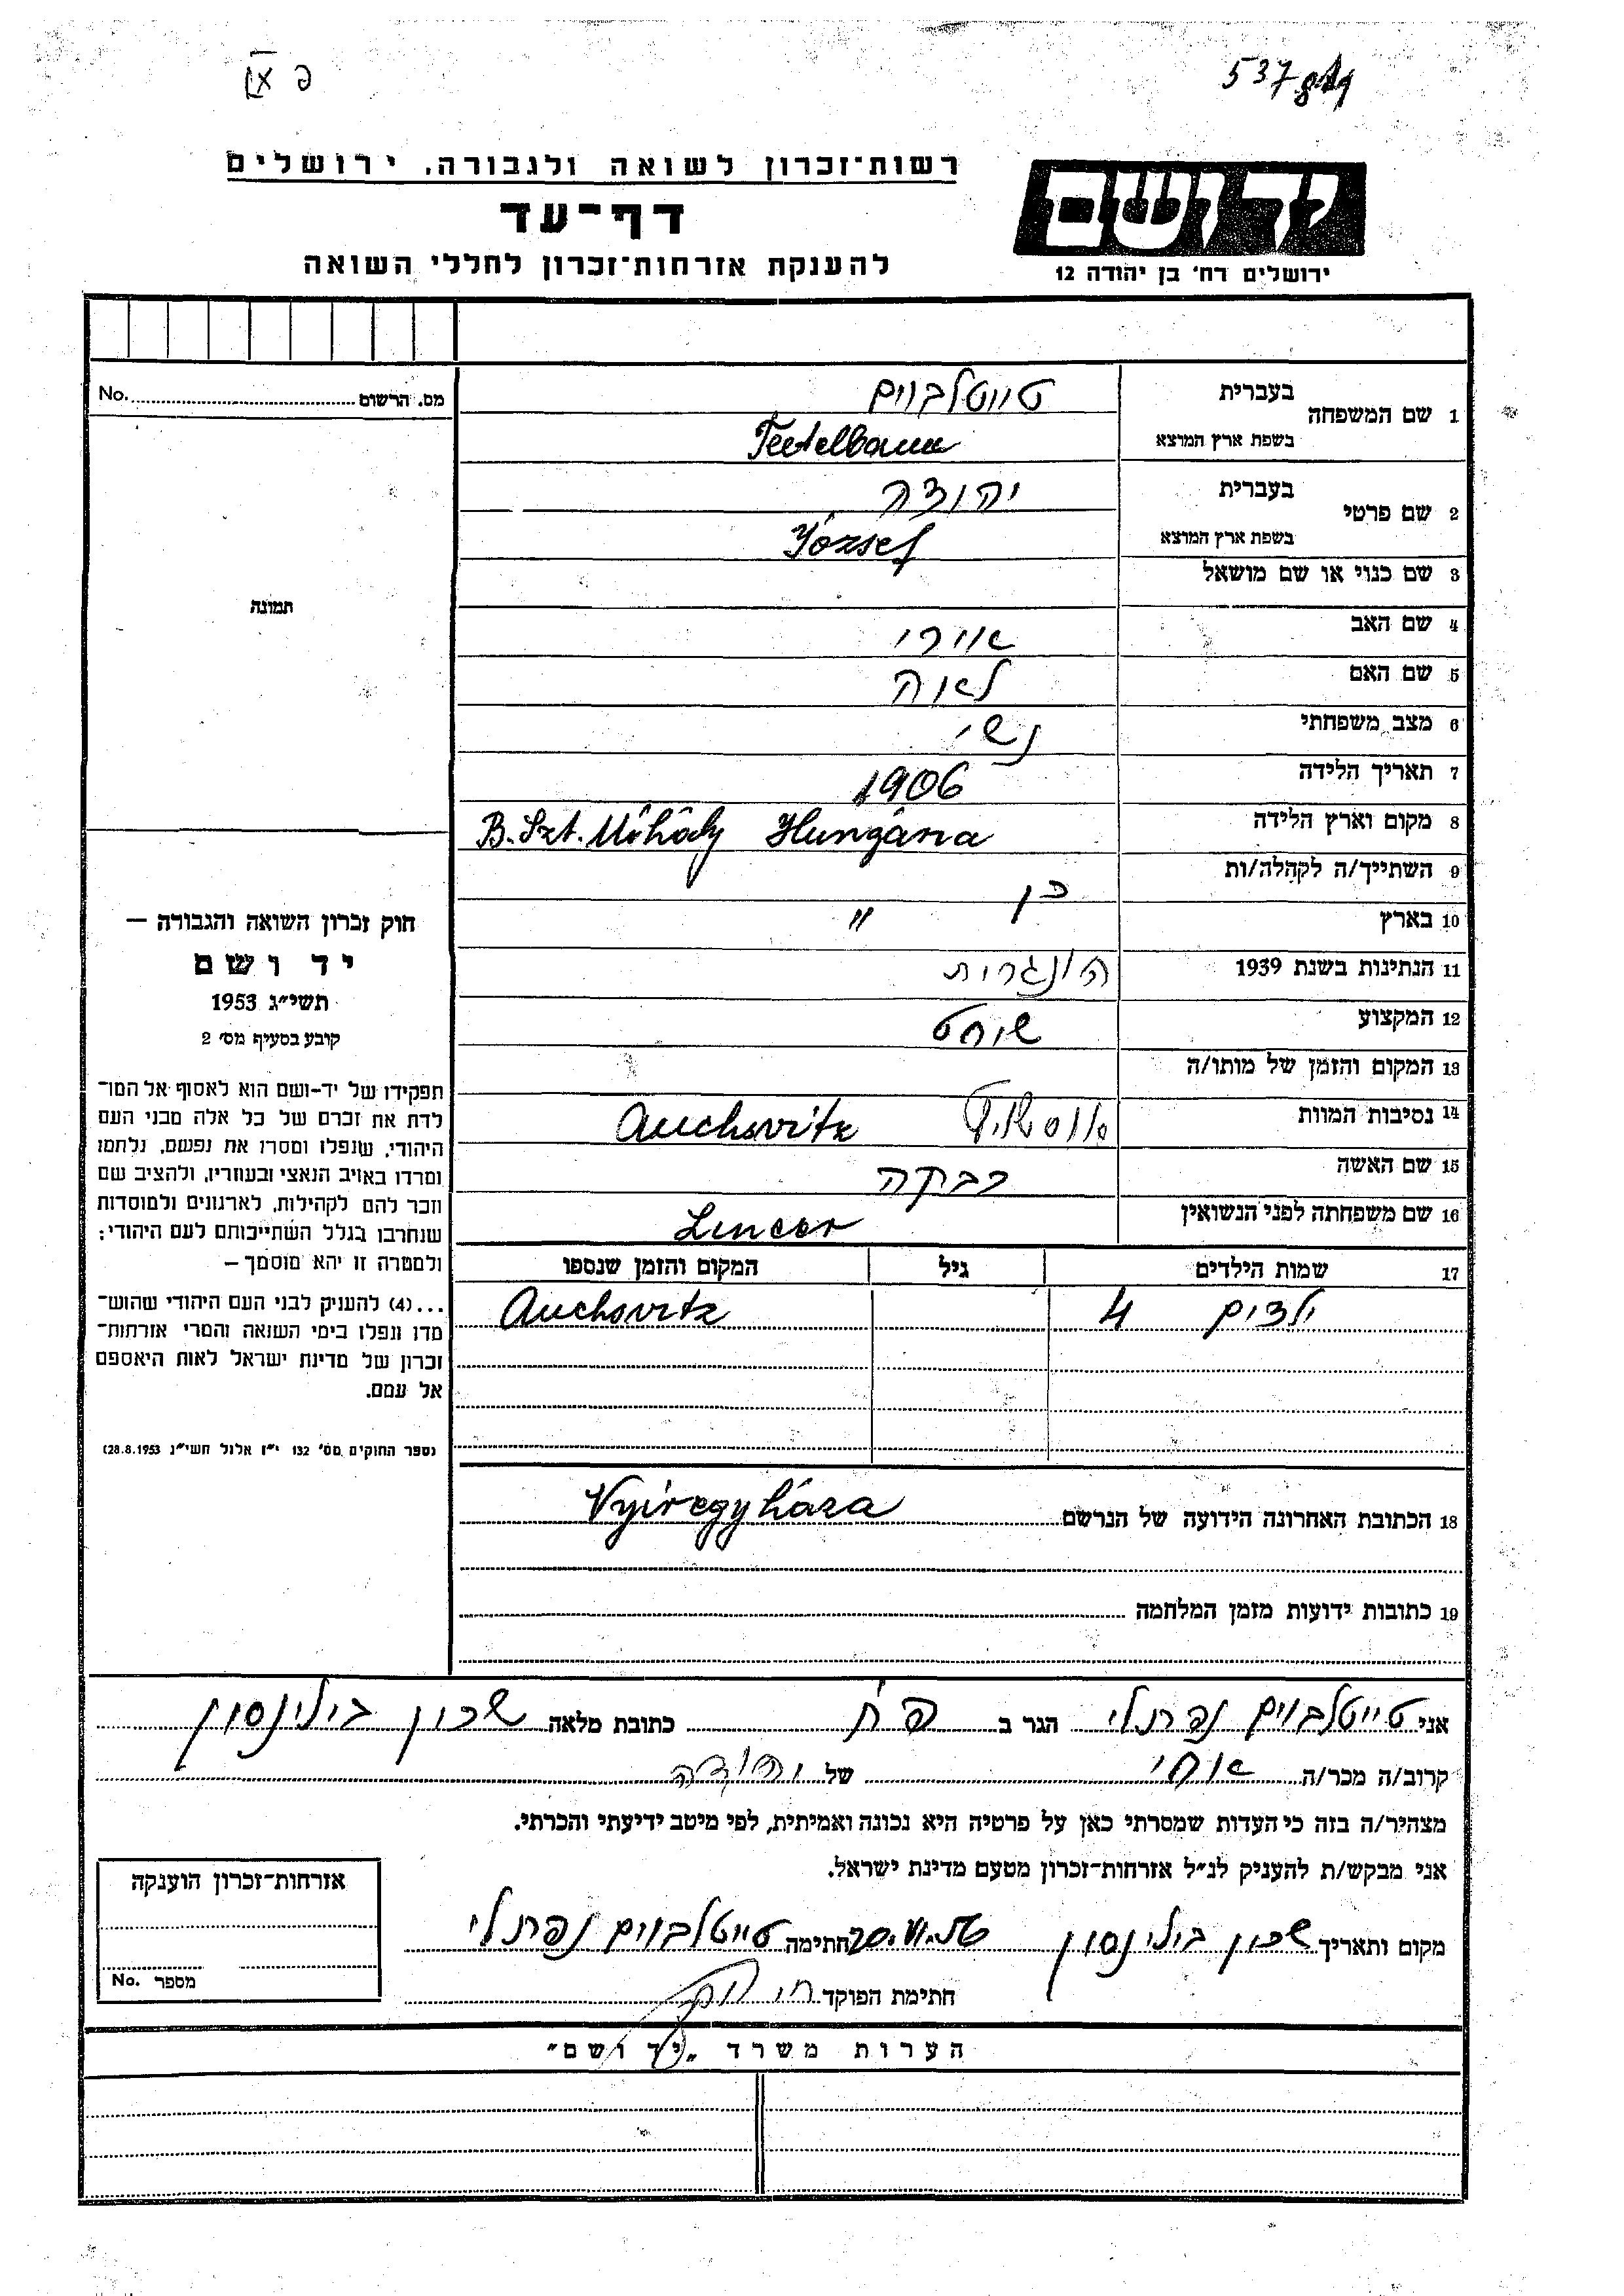 פ אן
537
רשות־זכרון לשואה ולגבורה, ירושלים
דף־עד
להענקת אזרחות־זכרון לחללי השואה
יד ושם
ירושלים רח' בן יהודה 12
מס. הרשום No.
תמונה
חוק זכרון השואה והגבורה —
יד ושם
תשי״ג 1953
קובע בסעיף מס׳ 2
תפקידו של יד-ושם הוא לאסוף אל המו־
לדת את זכרם של כל אלה מבני העם
היהודי, שנפלו ומסרו את נפשם, נלחמו
ומרדו באויב הנאצי ובעוזריו, ולהציב שם
וזכר להם לקהילות, לארגונים ולמוסדות
שנחרבו בגלל השתייכותם לעם היהודי;
ולמטרה זו יהא מוסמך —
...(4) להעניק לבני העם היהודי שהוש־
מדו ונפלו בימי השואה והמרי אזרחות־
זכרון של מדינת ישראל לאות היאספם
אל עמם.
(ספר החוקים מס׳ 132 י״ז אלול תשי״ג 28.8.1953)
1 שם המשפחה בעברית טייטלבוים
בשפת ארץ המוצא Teitelbaum
2 שם פרטי בעברית יהודה
בשפת ארץ המוצא József
3 שם כנוי או שם מושאל
4 שם האב אורי
5 שם האם לאה
6 מצב משפחתי נשוי
7 תאריך הלידה 1906
8 מקום וארץ הלידה B. Szt. Mihály Hungária
9 השתייך/ה לקהלה/ות כן
10 בארץ "
11 הנתינות בשנת 1939 הונגרית
12 המקצוע שוחט
13 המקום והזמן של מותו/ה
14 נסיבות המוות Auchsvitz
15 שם האשה רבקה
16 שם משפחתה לפני הנשואין
17 שמות הילדים גיל המקום והזמן שנספו
ילדים 4 Auchsvitz
18 הכתובת האחרונה הידועה של הנרשם Nyiregyháza
19 כתובות ידועות מזמן המלחמה
אני טייטלבוים נפתלי הגר ב פ״ת כתובת מלאה שכון בילינסון
קרוב/ה מכר/ה אחי של יהודה
מצהיר/ה בזה כי העדות שמסרתי כאן על פרטיה היא נכונה ואמיתית, לפי מיטב ידיעתי והכרתי.
אני מבקש/ת להעניק לנ״ל אזרחות־זכרון מטעם מדינת ישראל.
מקום ותאריך שכון בילינסון 20.VI.56 חתימה טייטלבוים נפתלי
חתימת הפוקד
אזרחות־זכרון הוענקה
מספר No.
הערות משרד „יד ושם״